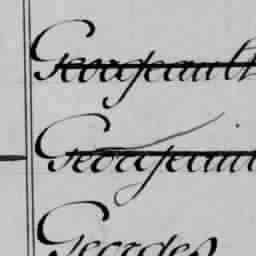 Georgeault
Georgeault
Georges